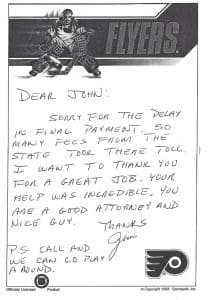 FLYERS
DEAR JOHN:
SORRY FOR THE DELAY
IN FINAL PAYMENT. SO
MANY FEES FROM THE
STATE TOOK THERE TOLL.
I WANT TO THANK YOU
FOR A GREAT JOB. YOUR
HELP WAS INCREDIBLE. YOU
ARE A GOOD ATTORNEY AND
NICE GUY.
THANKS
Jim
P.S. CALL AND
WE CAN GO PLAY
A ROUND.
Officially Licensed Product